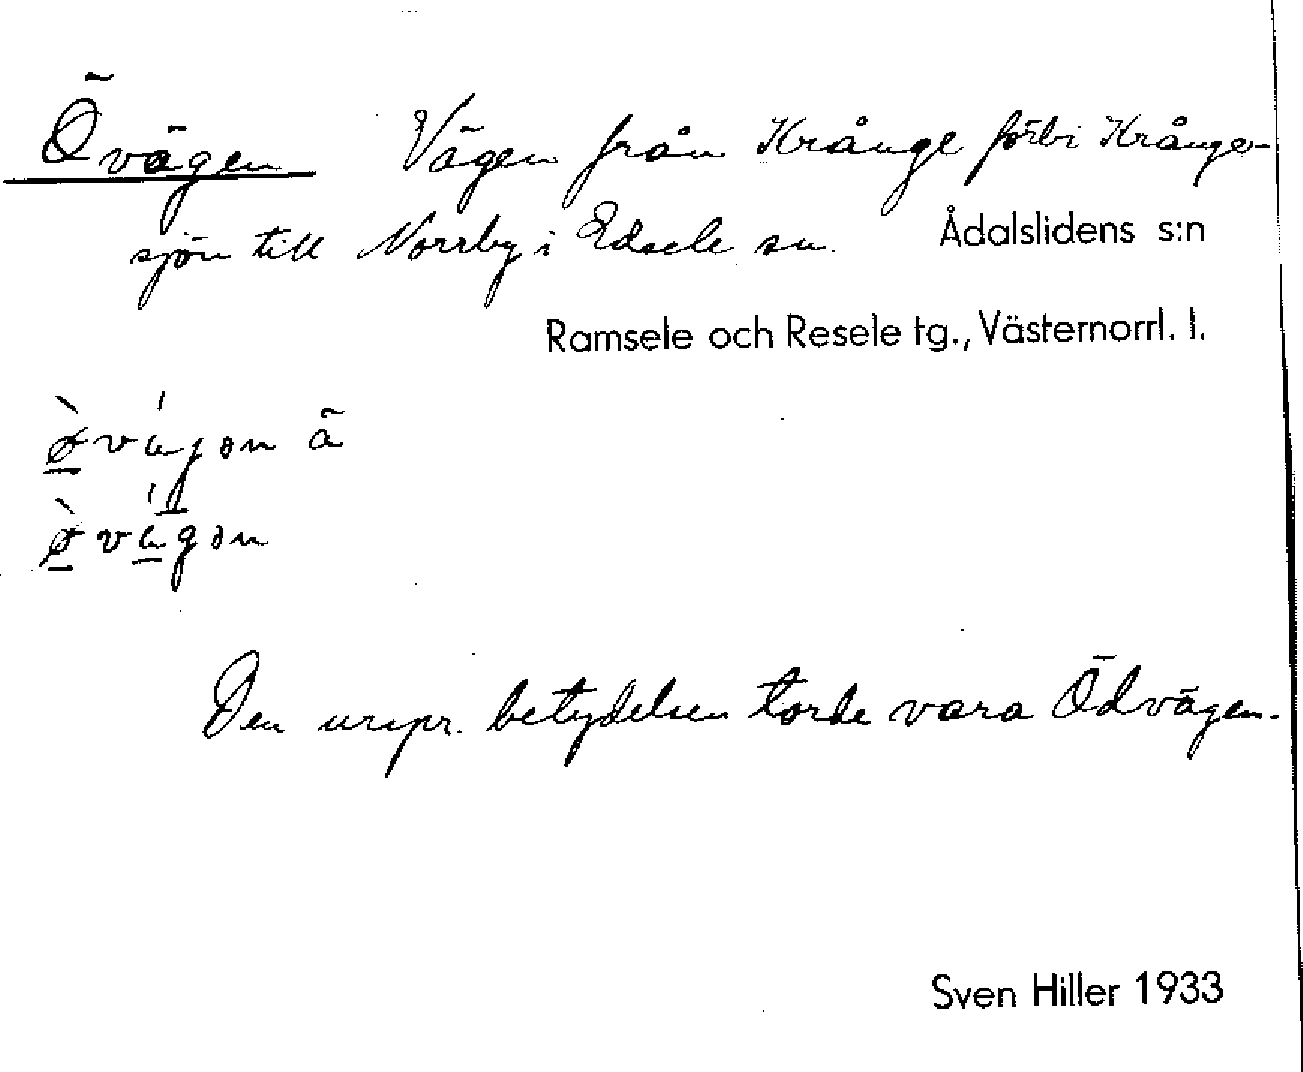 Övägen Vägen från Krånge förbi Krånge-
sjön till Norrby i Edsele sn. Ådalslidens s:n
Ramsele och Resele tg., Västernorrl. l.
Den urspr. betydelsen torde vara Ödvägen.
Sven Hiller 1933